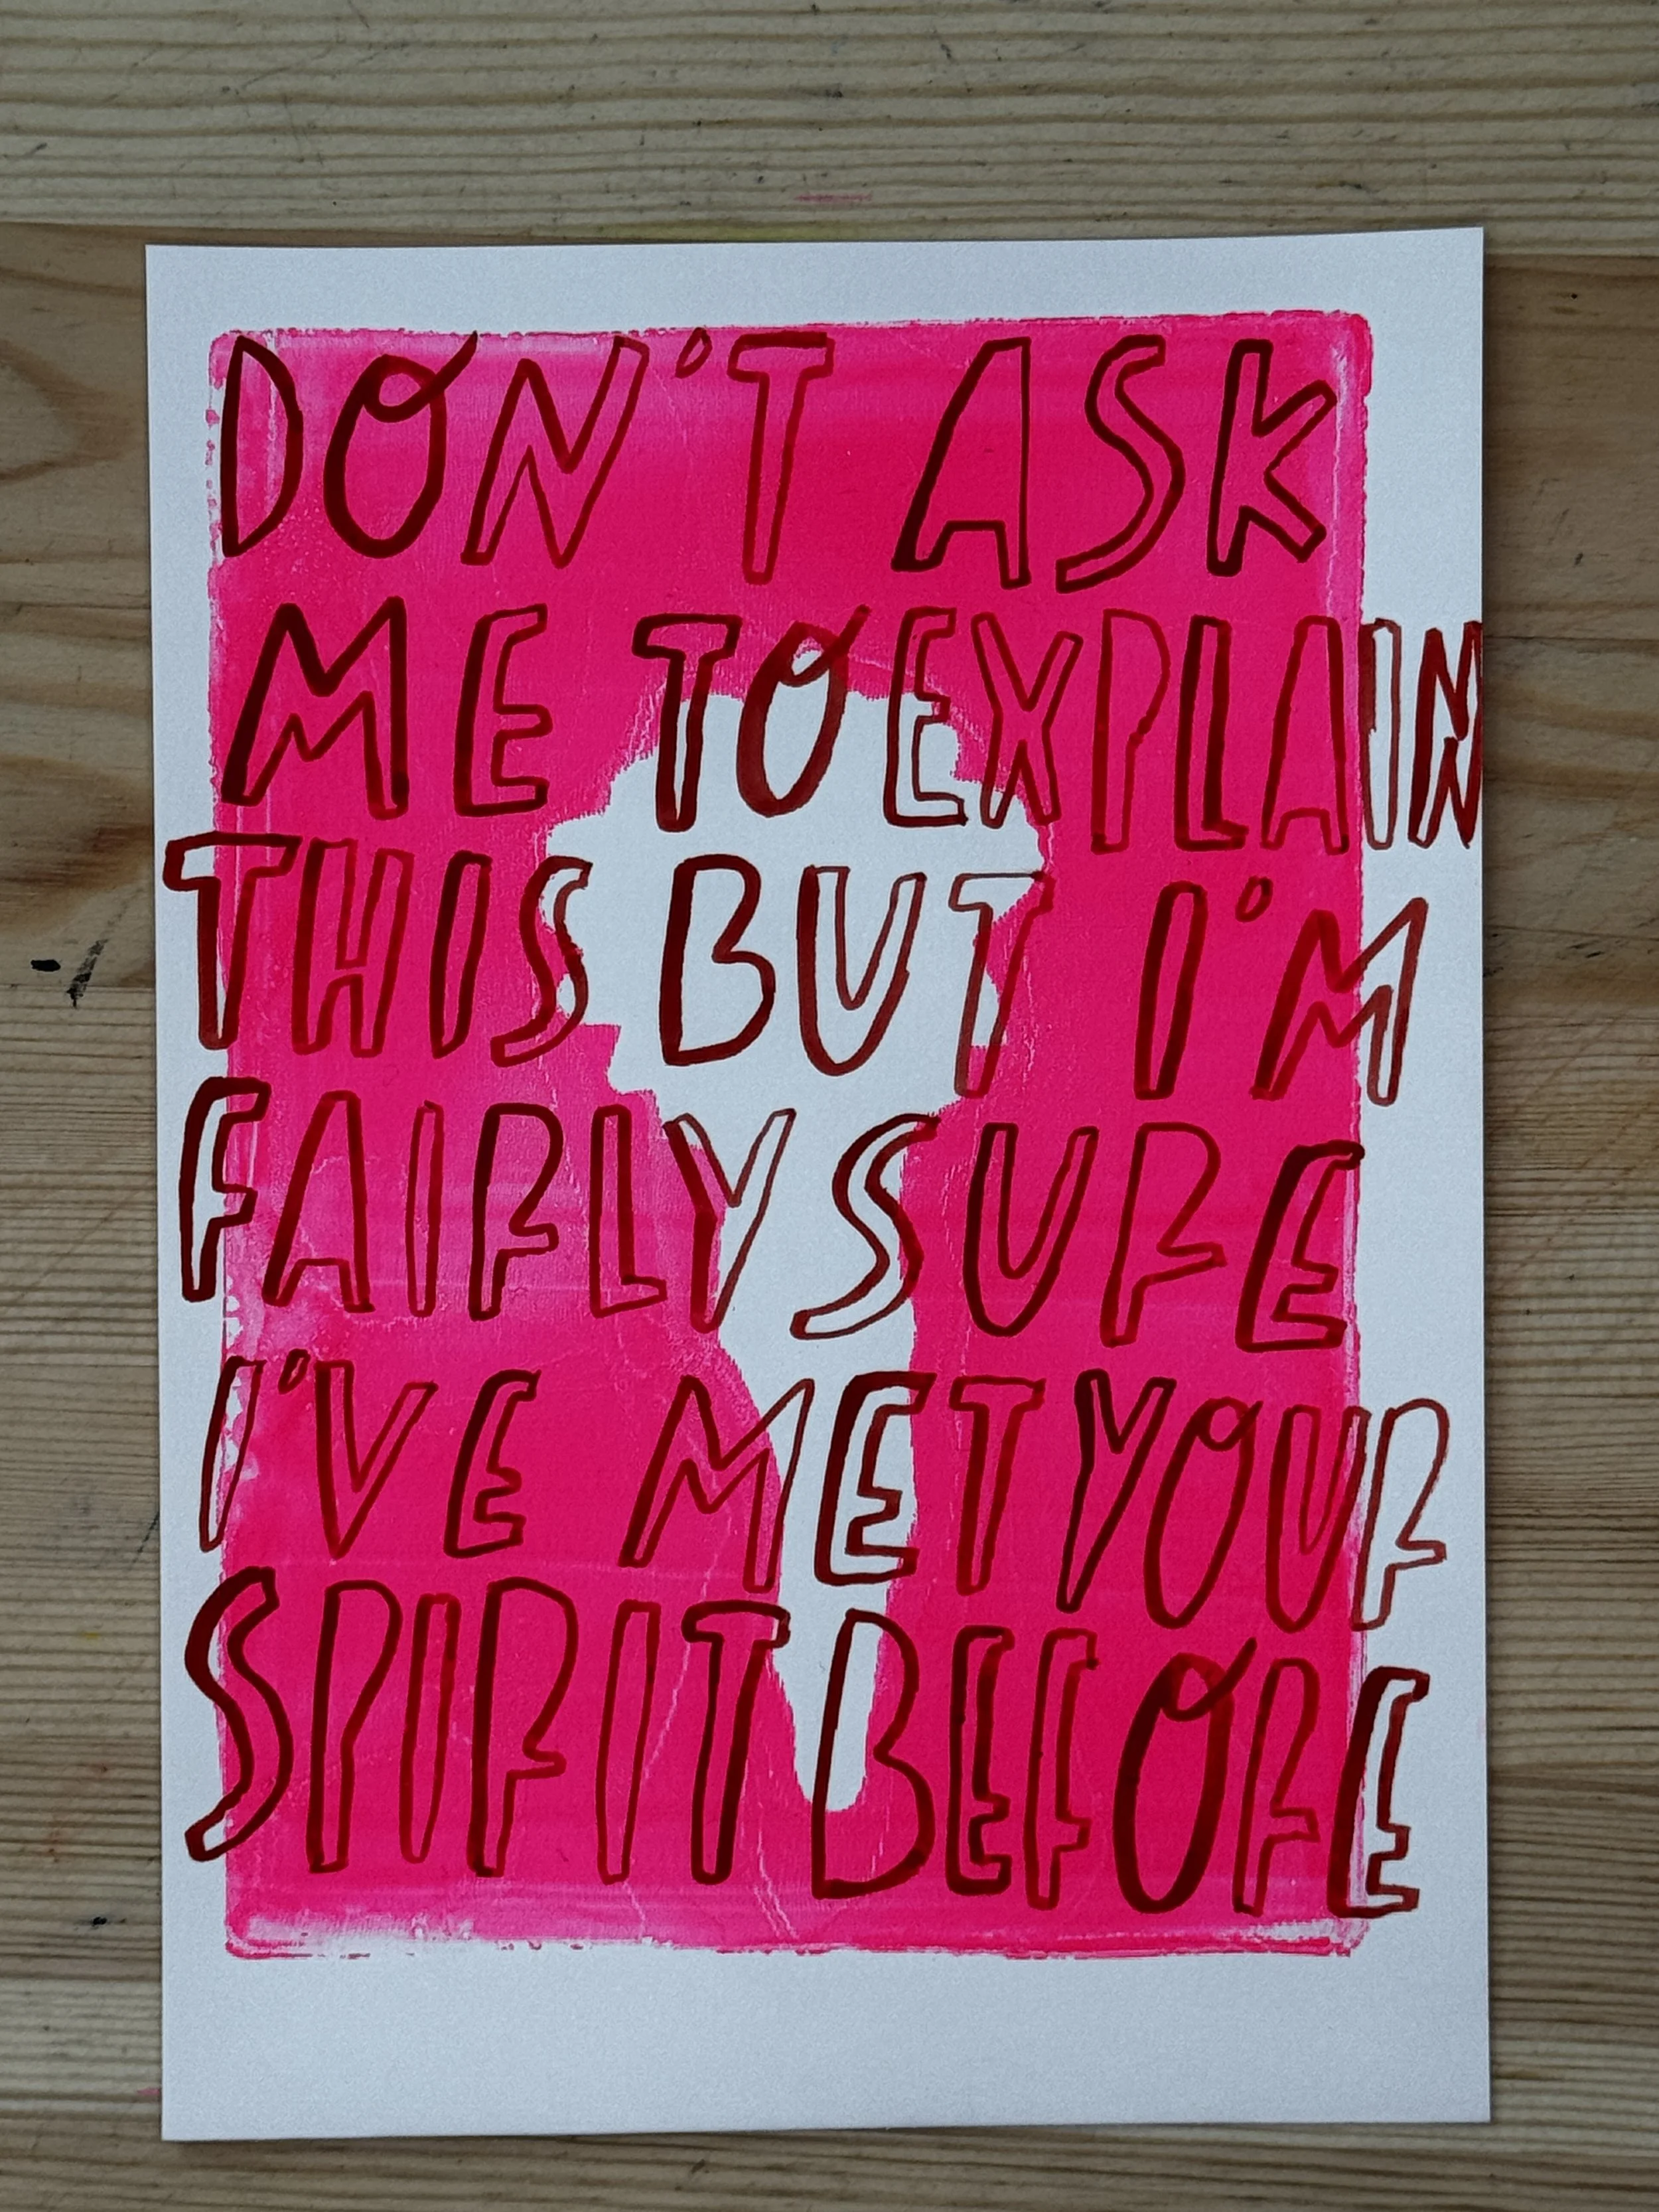 DON'T ASK
ME TO EXPLAIN
THIS BUT I'M
FAIRLY SURE
I'VE MET YOUR
SPIRIT BEFORE